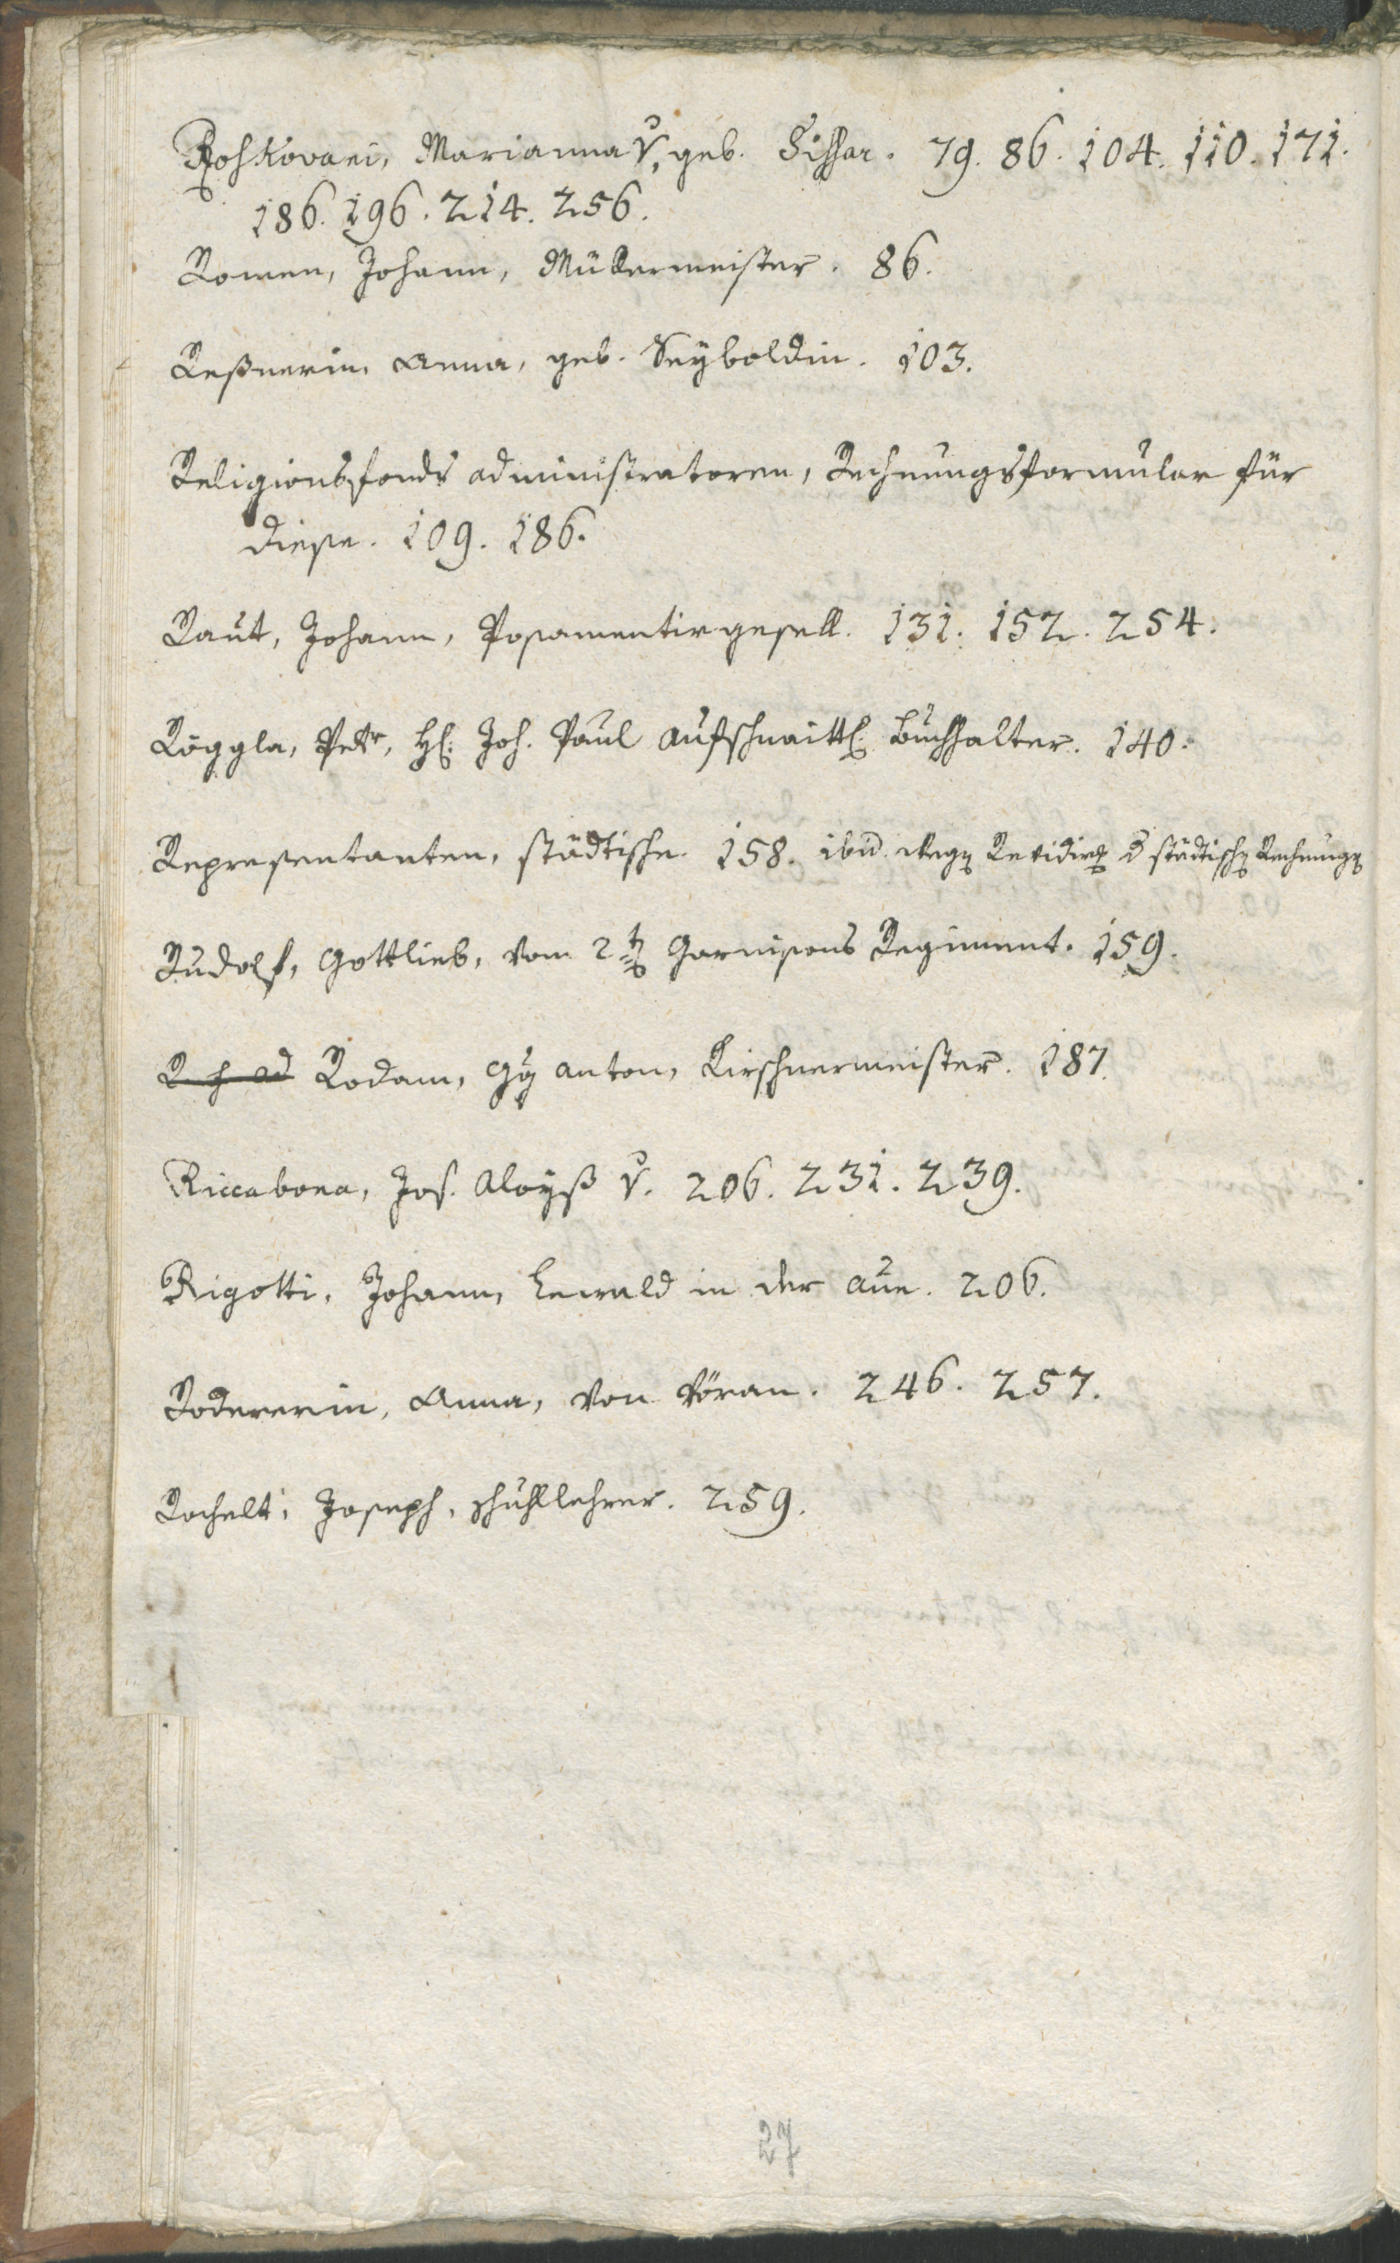 Roskovani, Marianna v. geb. Fisser. 79. 86. 104. 110. 171.
186. 196. 214. 256.
Romen, Johann, Müllermeister. 86.
Reßnerin Anna, geb. Seyboldin. 103.
Religionsfonds administratoren, Rechnungsformular für
diese. 109. 186.
Raut, Johann, Posamentirgesell. 131. 152. 254.
Röggla, Petr, H: Joh. Paul Aufschnaitt: Buchhalter. 140.
Representanten, städtische. 158. ibid. weg Revidir d städtisch Rechnung
Rudolf, Gottlieb, vom 2t Garnisons Regiment. 159.
Rodam, Gg Anton, Kirschnermeister. 187.
Riccabona, Jos. Aloyß v. 206. 231. 239.
Rigotti, Johann, Lewald in der Aue. 206.
Rodererin, Anna, von Vöran. 246. 257.
Rochelt, Joseph, Schullehrer. 259.
27